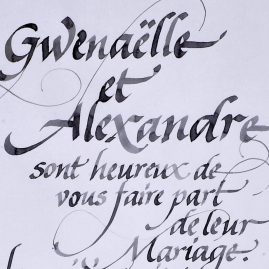 Gwenaëlle
et
Alexandre
sont heureux de
vous faire part
de leur
Mariage.